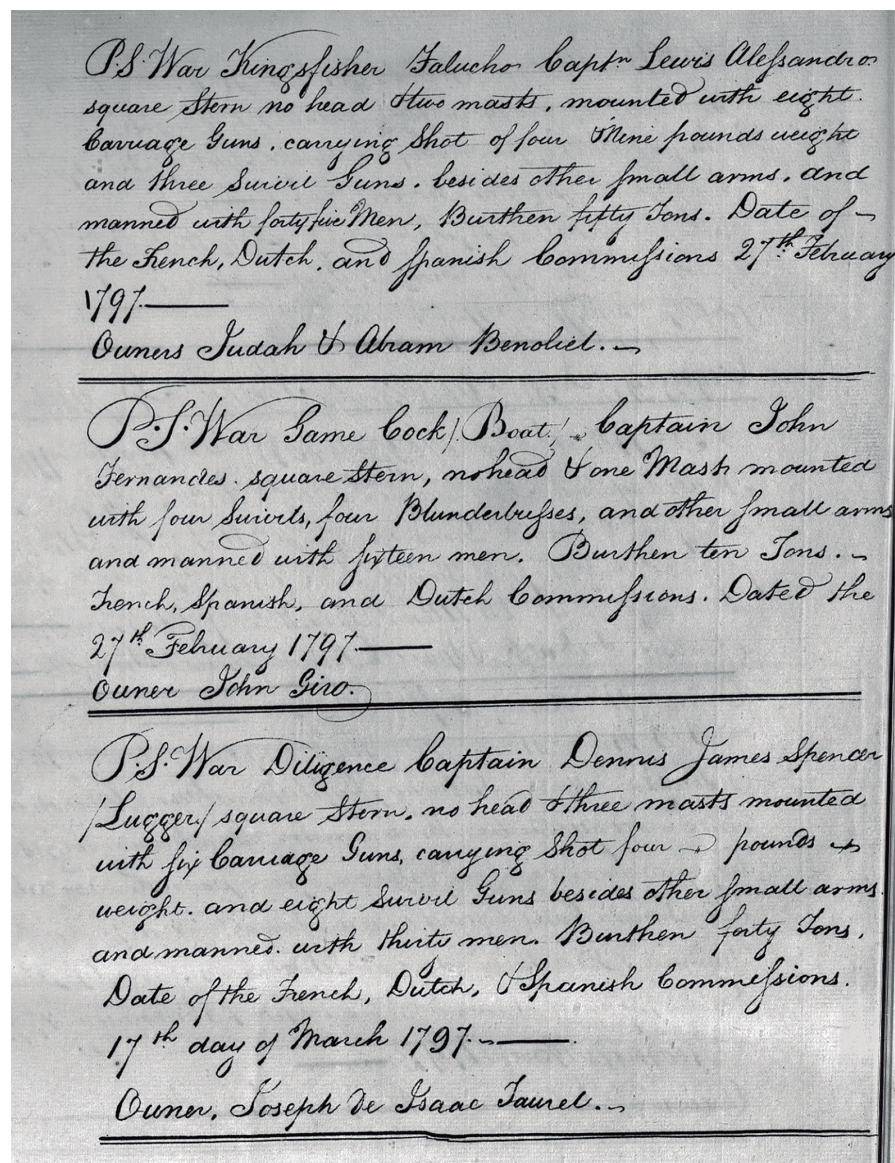 P.S. War Kingsfisher Falucho Captn Lewis Alessandro
square Stern no head & two masts, mounted with eight
Carriage Guns, carrying Shot of four & Nine pounds weight
and three Swivil Guns, besides other small arms, and
manned with forty five Men, Burthen fifty Tons. Date of
the French, Dutch, and Spanish Commissions 27th February
1797.
Owners Judah & Abram Benoliel.
P.S. War Game Cock /Boat/ Captain John
Fernandes. square Stern, no head & one Mash mounted
with four Swivils, four Blunderbusses, and other small arms
and manned with sixteen men. Burthen ten Tons.
French, Spanish, and Dutch Commissions. Dated the
27th February 1797.
Owner John Giro.
P.S. War Diligence Captain Dennis James Spencer
/Lugger/ square Stern, no head & three masts mounted
with six Carriage Guns, carrying Shot four pounds
weight, and eight Swivil Guns besides other small arms.
and manned with thirty men. Burthen forty Tons.
Date of the French, Dutch, & Spanish Commissions.
17th day of March 1797.
Owner, Joseph de Isaac Taurel.